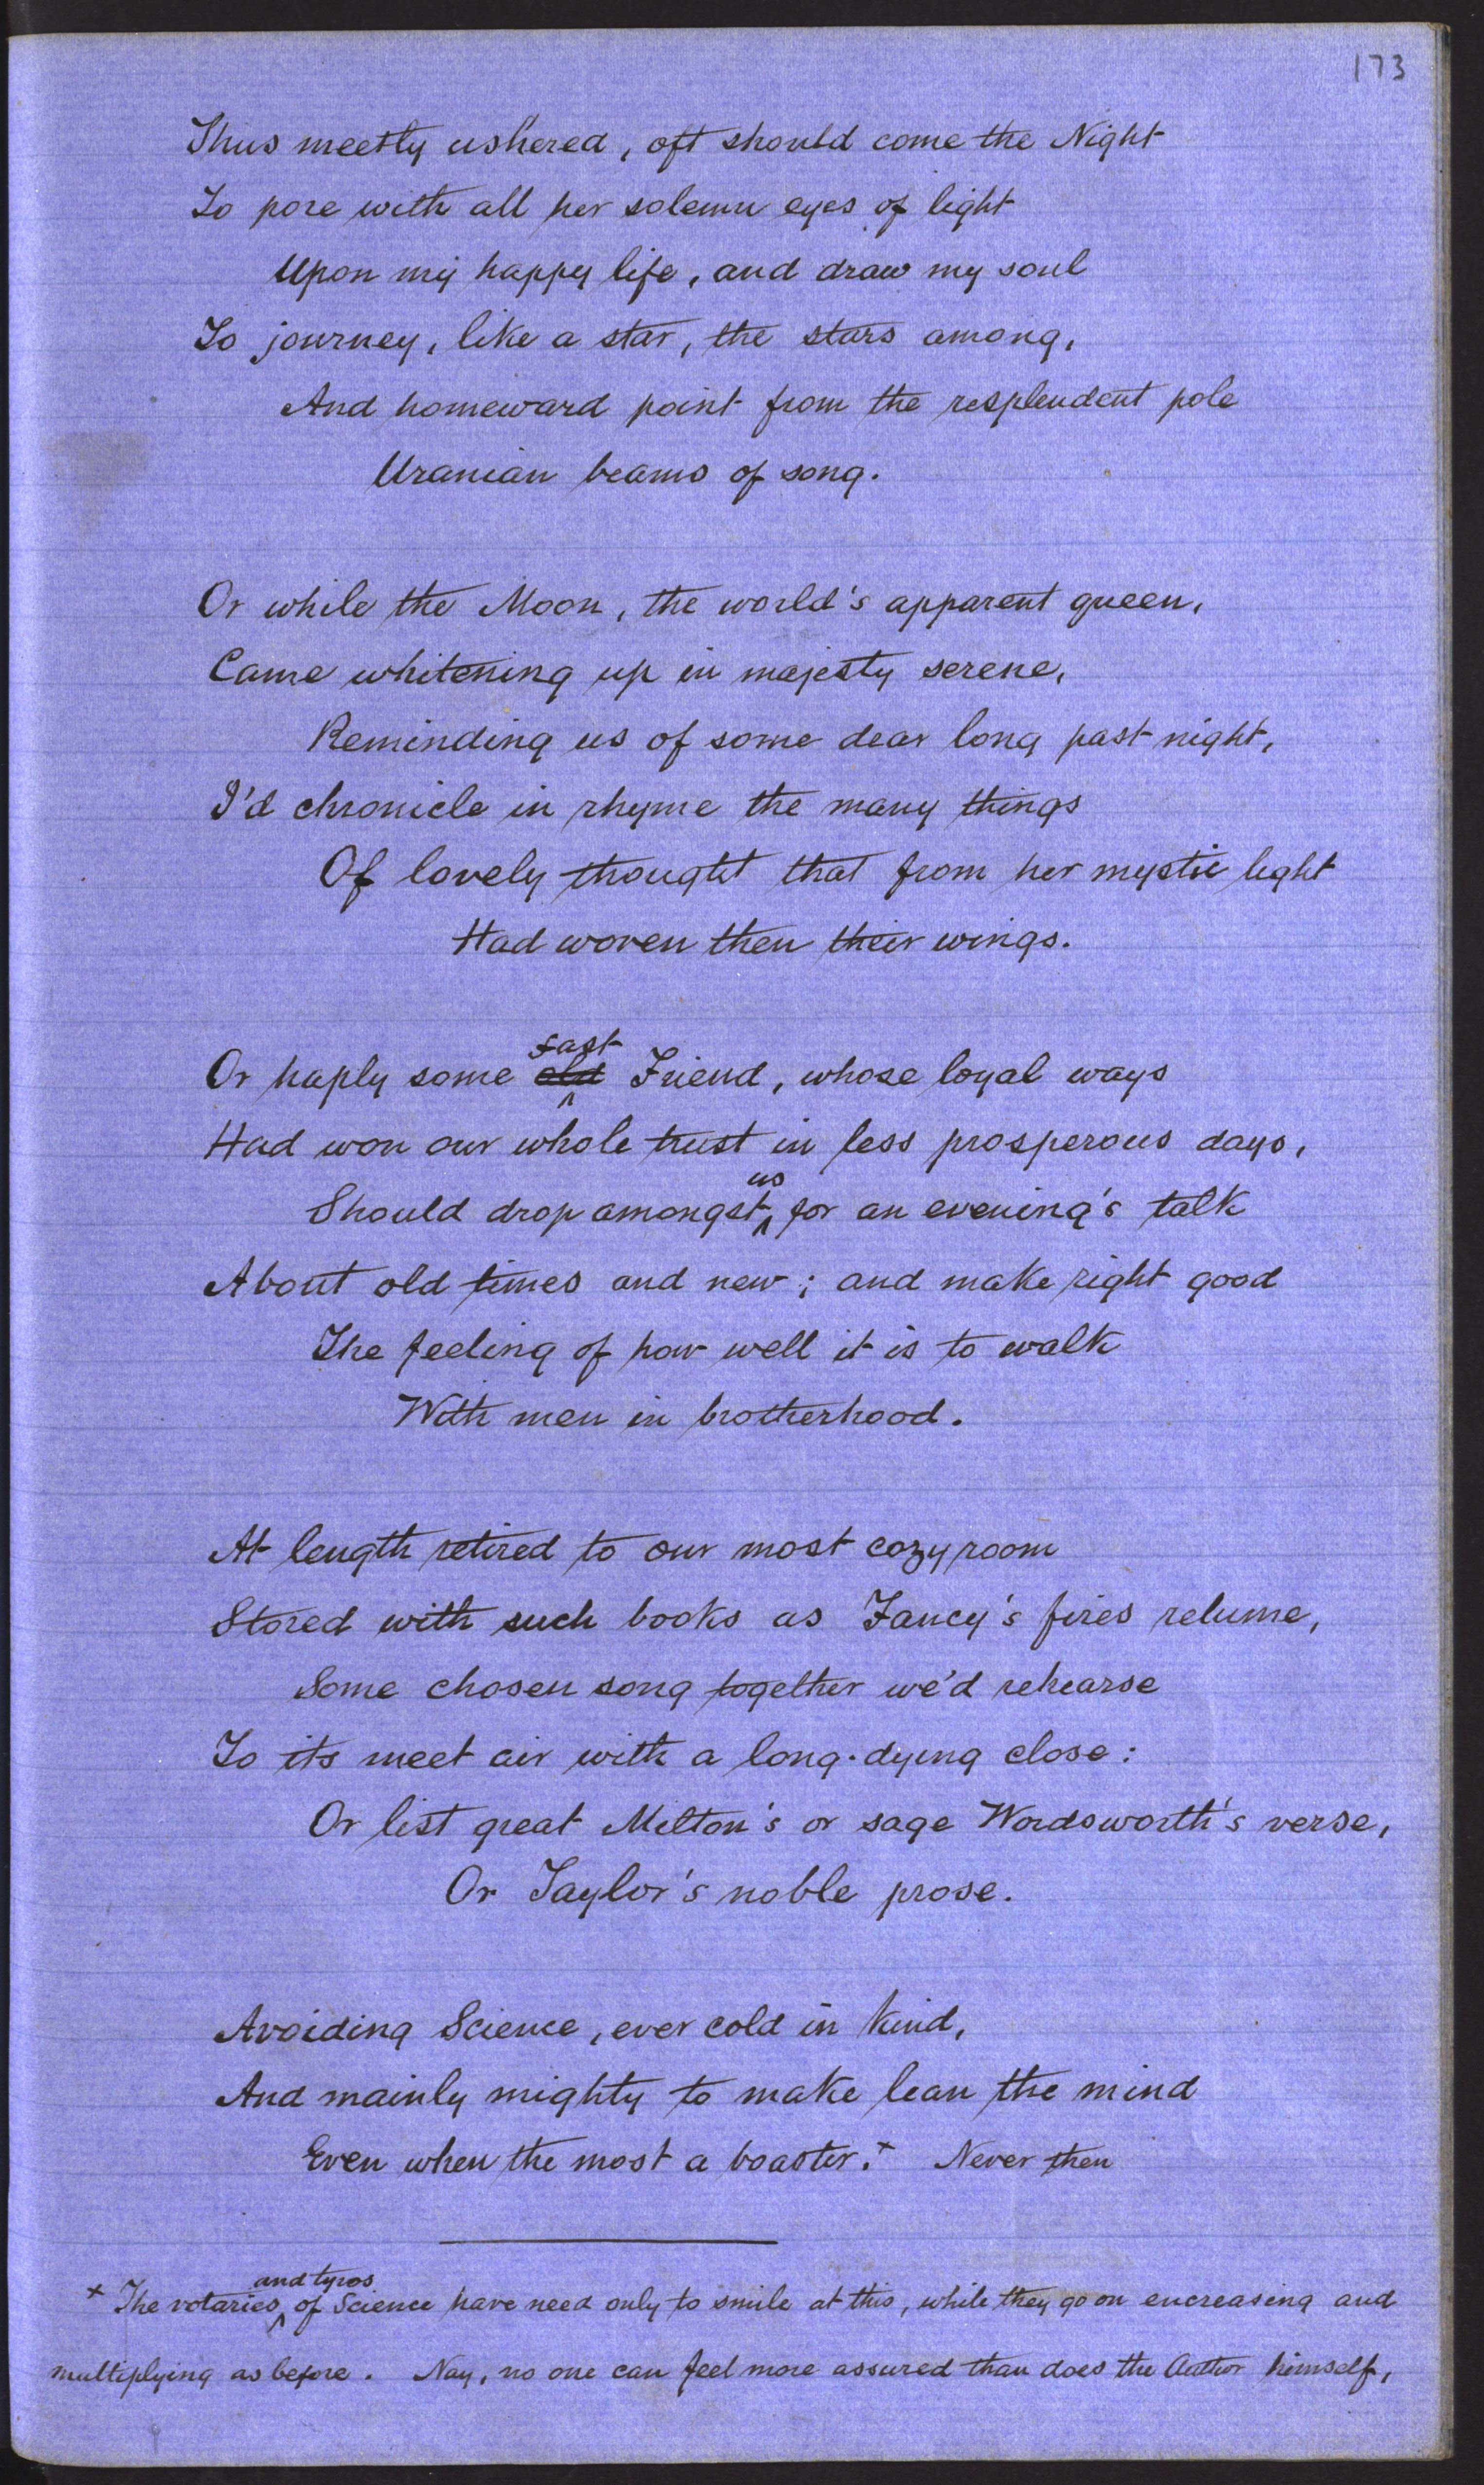 173
Thus meetly ushered, oft should come the Night
To pore with all her solemn eyes of light
Upon my happy life, and draw my soul
To journey, like a star, the stars among,
And homeward point from the resplendent pole
Uranian beams of song.
Or while the Moon, the world's apparent queen,
Came whitening up in majesty serene,
Reminding us of some dear long past night,
I'd chronicle in rhyme the many things
Of lovely thought that from her mystic light
Had woven then their wings.
fast
Or haply some old Friend, whose loyal ways
Had won our whole trust in less prosperous days,
us
Should drop amongst for an evening's talk
About old times and new; and make right good
The feeling of how well it is to walk
With men in brotherhood.
At length retired to our most cozy room
Stored with such books as Fancy's fires relume,
Some chosen song together we'd rehearse
To its meet air with a long-dying close:
Or list great Milton's or sage Wordsworth's verse,
Or Taylor's noble prose.
Avoiding Science, ever cold in kind,
And mainly mighty to make lean the mind
Even when the most a boaster.+ Never then
and tyros
+ The votaries of Science have need only to smile at this, while they go on encreasing and
multiplying as before. Nay, no one can feel more assured than does the Author himself,